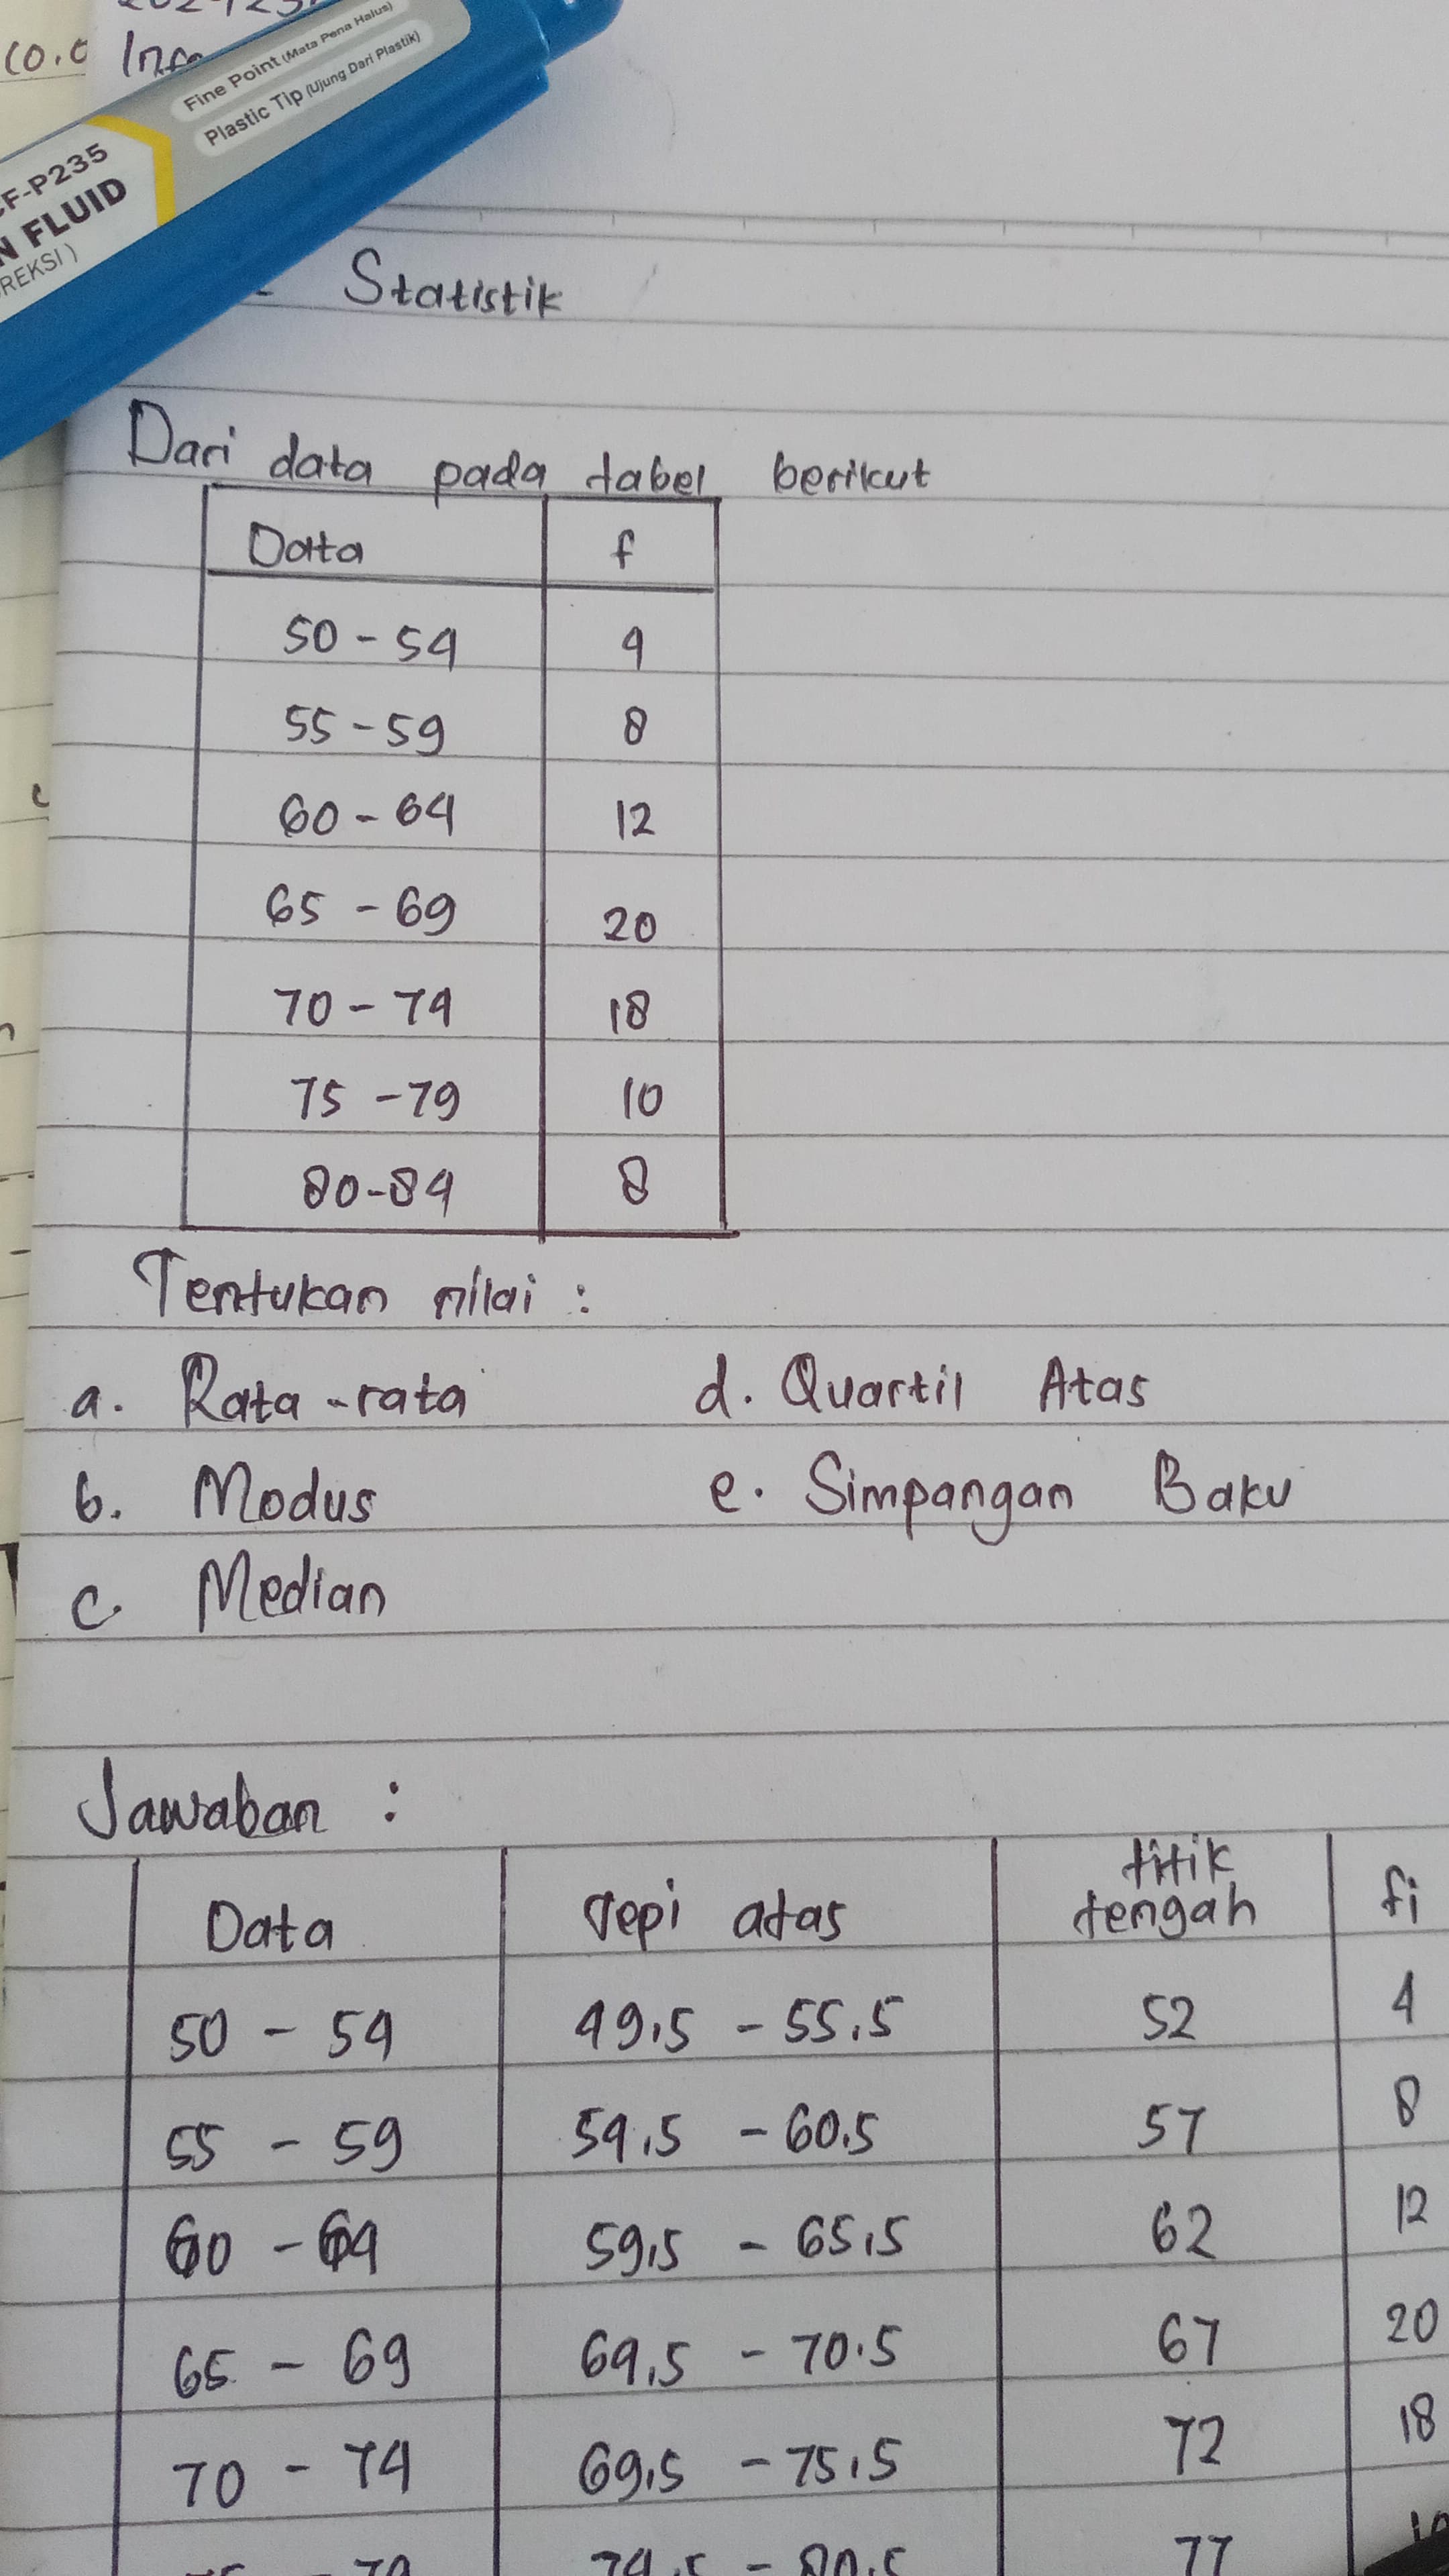 Fine Point (Mata Pena Halus)
Plastic Tip (Ujung Dari Plastik)
F-P235
N FLUID
REKSI)
Statistik
Dari data pada tabel berikut
Data f
50 - 54 4
55 - 59 8
60 - 64 12
65 - 69 20
70 - 74 18
75 - 79 10
80 - 84 8
Tentukan nilai :
a. Rata - rata d. Quartil Atas
b. Modus e. Simpangan Baku
c. Median
Jawaban :
Data Tepi atas titik tengah fi
50 - 54 49,5 - 55,5 52 4
55 - 59 54,5 - 60,5 57 8
60 - 64 59,5 - 65,5 62 12
65 - 69 64,5 - 70.5 67 20
70 - 74 69,5 - 75,5 72 18
77